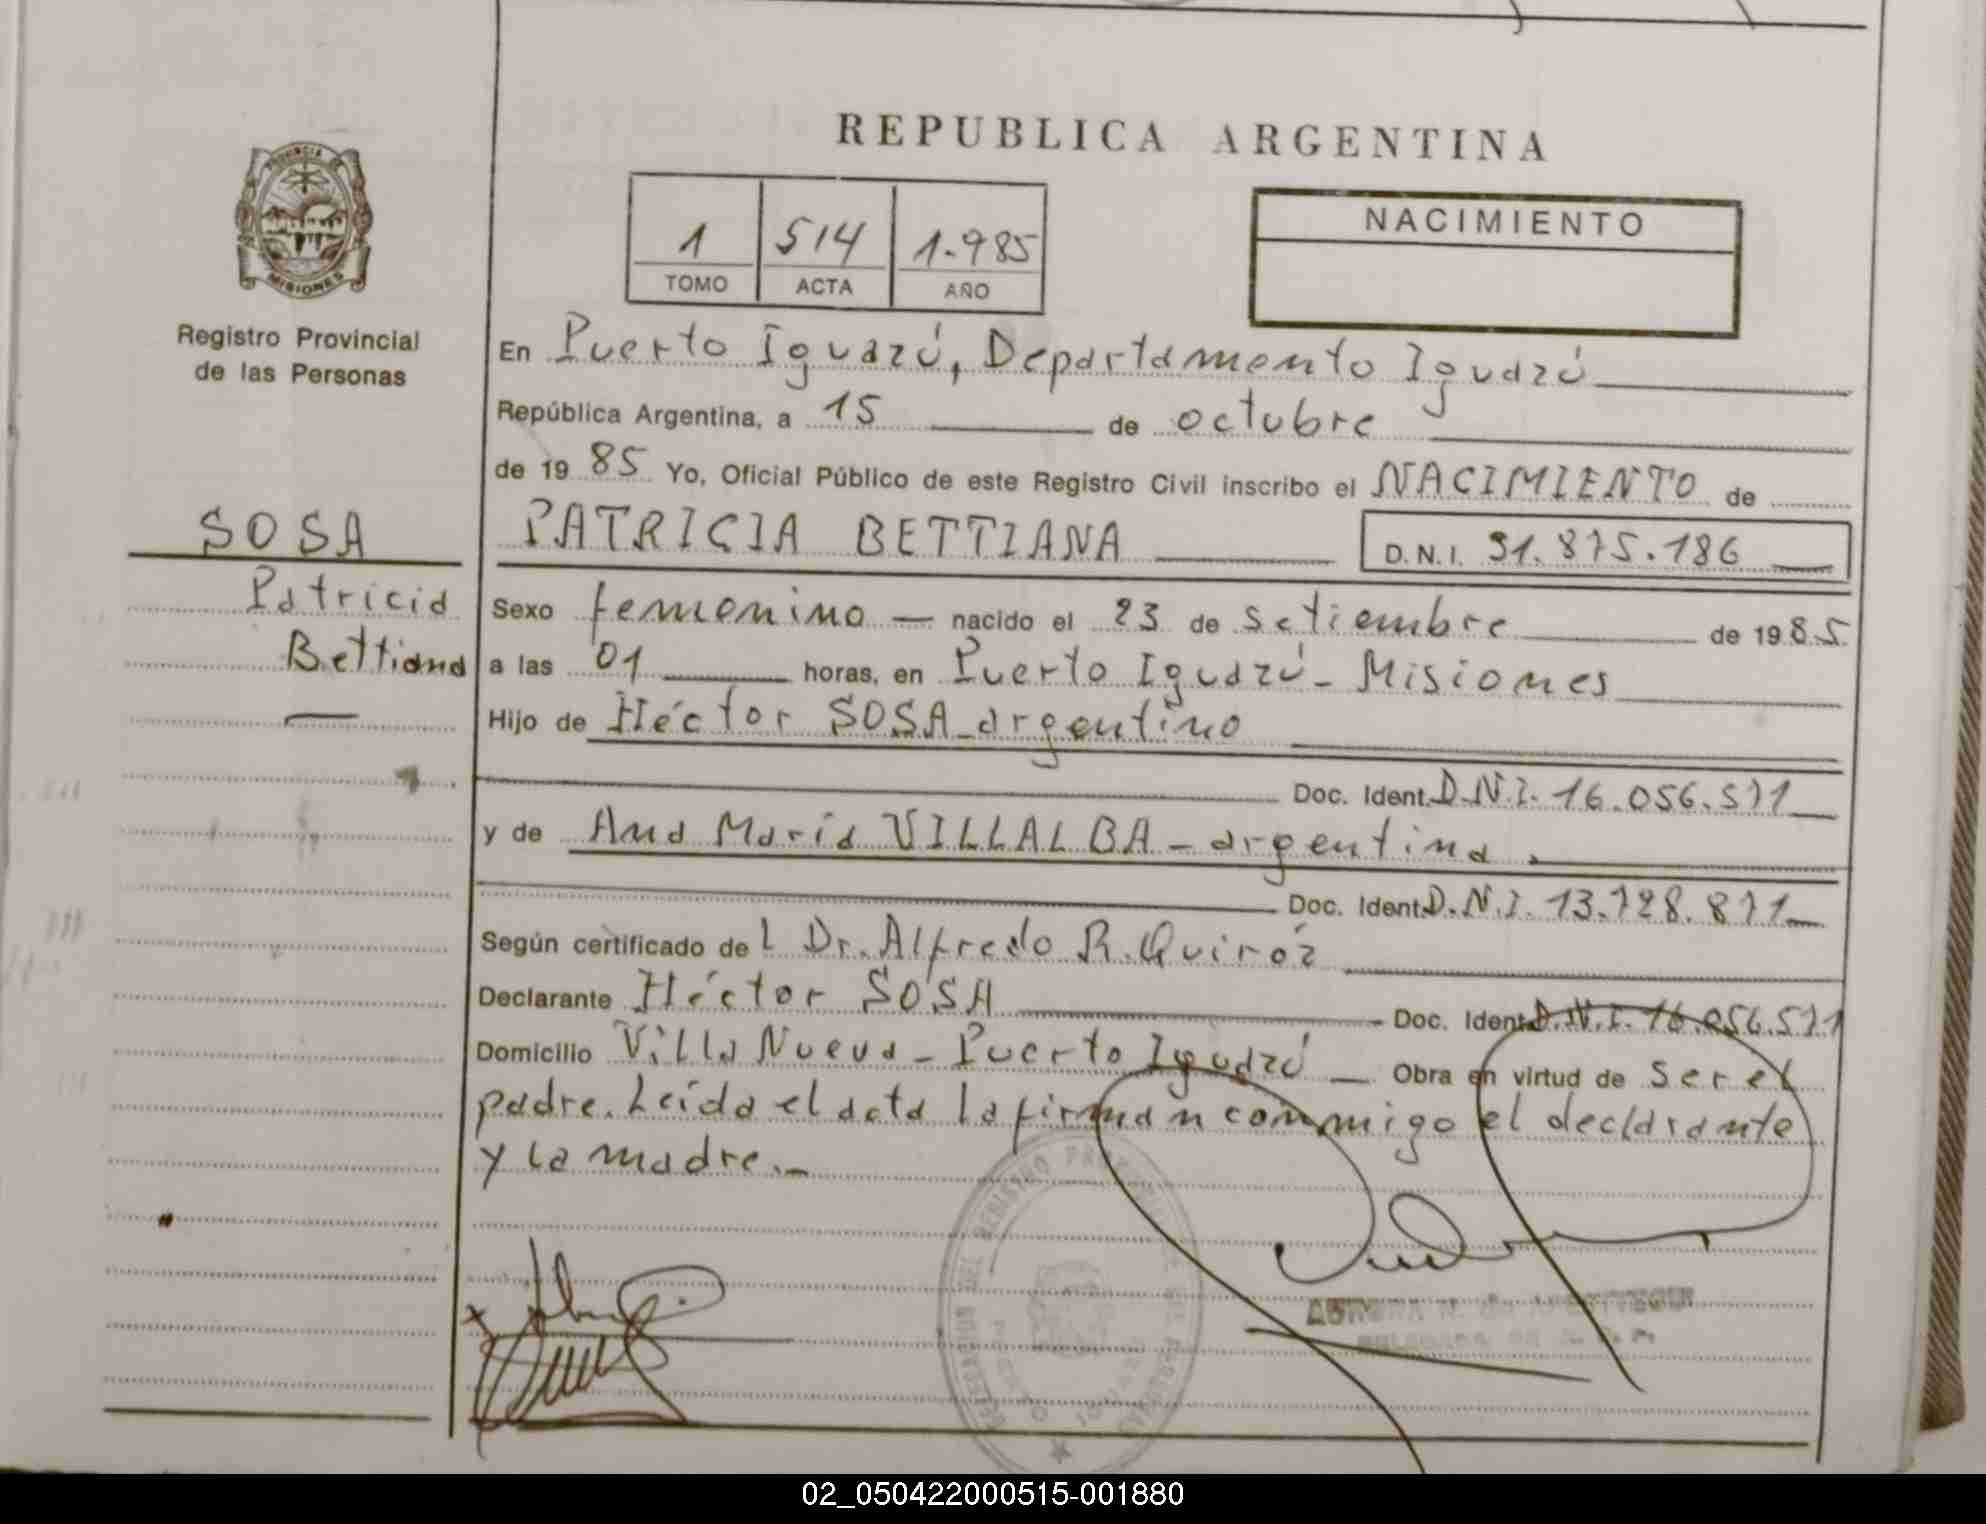 REPUBLICA ARGENTINA
PROVINCIA DE
MISIONES
Registro Provincial
de las Personas
1 514 1.985
TOMO ACTA AÑO
NACIMIENTO
En Puerto Iguazú, Departamento Iguazú
República Argentina, a 15 de octubre
de 19 85 Yo, Oficial Público de este Registro Civil inscribo el NACIMIENTO de
SOSA
Patricia
Bettiana
PATRICIA BETTIANA D.N.I. 31.875.186
Sexo femenino — nacido el 23 de setiembre de 19 85.
a las 01 horas, en Puerto Iguazú - Misiones
Hijo de Héctor SOSA - argentino
Doc. Ident. D.N.I. 16.056.571
y de Ana María VILLALBA - argentina.
Doc. Ident. D.N.I. 13.728.871
Según certificado de l Dr. Alfredo R. Quiróz
Declarante Héctor SOSA Doc. Ident. D.N.I. 16.056.571
Domicilio Villa Nueva - Puerto Iguazú — Obra en virtud de ser el
padre. Leida el acta la firman conmigo el declarante
y la madre.-
02_050422000515-001880